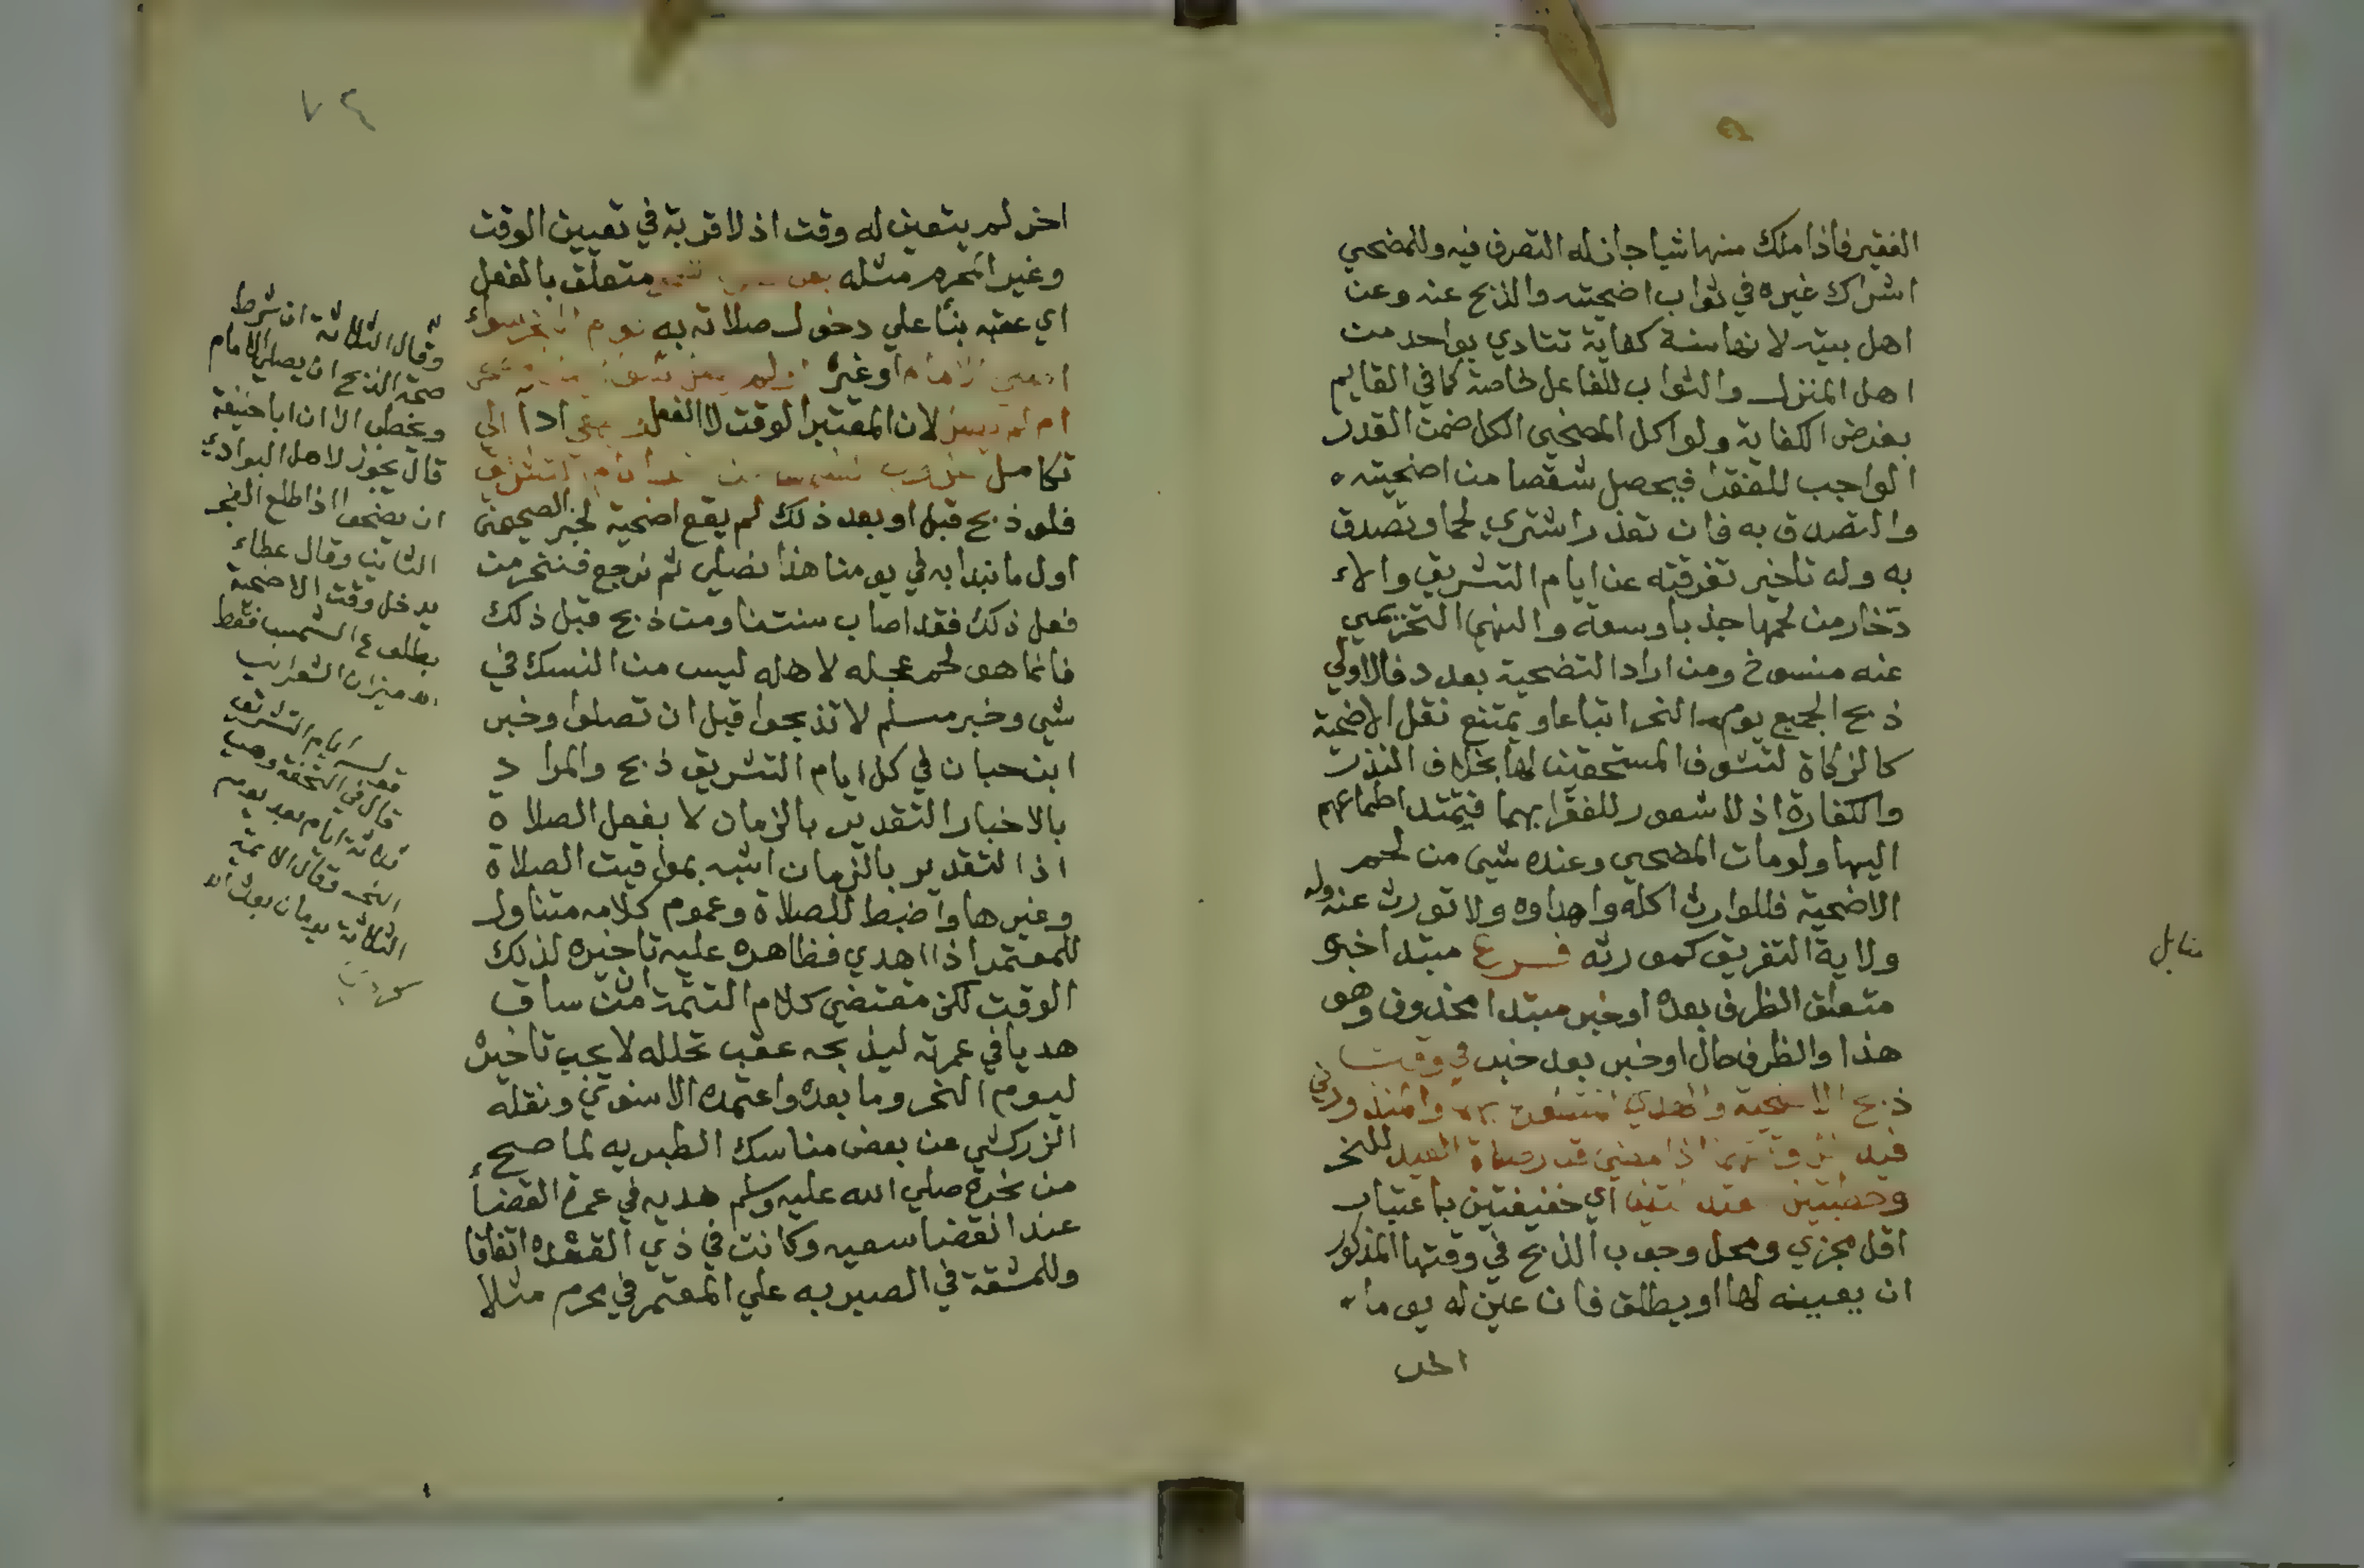 الفقير فاذا ملك منها شيا جاز له التصرف فيه وللمضحي
اشراك غيره في ثواب اضحيته والذبح عنه وعن
اهل بيته لانها سنة كفاية تتادي بواحد من
اهل المنزل والثواب للفاعل خاصة كما في القايم
بفرض الكفاية ولو اكل المضحي الكل ضمن القدر
الواجب للفقرا فيحصل شقصا من اضحيته
والتصدق به فان تعذر اشتري لحما وتصدق
به وله تاخير تفرقته عن ايام التشريق والا
دخار من لحمها جذبا وسعة والنهي التحريمي
عنه منسوخ ومن اراد التضحية بعدد فالاولي
ذبح الجميع يوم النحر اتباعا ويمتنع نقل الاضحية
كالزكاة لتشوف المستحقين لها بخلاف النذر
والكفارة اذ لا شعور للفقرا بهما فيمتد اطماعهم
اليها ولو مات المضحي وعنده شي من لحم
الاضحية فللوارث اكله واهداوه ولا تورث عنه وله
ولاية التفريق كمورثه فرع مبتدا خبره
متعلق الظرف بعده او خبر مبتدا محذوف وهو
هذا والظرف حال او خبر بعد خبر في وقت
ذبح الاضحية والهدي والمنذورين
اذا مضي قدر صلاة العيد للنحر
وخطبتين اي خفيفتين باعتبار
اقل مجزي ومحل وجوب الذبح في وقتها المذكور
ان يعينه لها او يطلق فان عين له يوما
مقابل
اخر لم يتعين له وقت اذ لا قربة في تعيين الوقت
وغير المحرم مثله متعلق بالفعل
اي عقبه بنا علي دخول صلاته به يوم النحر سوا
الامام او غيره
ام لم لان المعتبر الوقت لا الفعل ادا الي
تكامل غروب ايام التشريق
فلو ذبح قبل او بعد ذلك لم يقع اضحية لخبر الصحيحين
اول ما نبدا به في يومنا هذا نصلي ثم نرجع فننحر من
فعل ذلك فقد اصاب سنتنا ومن ذبح قبل ذلك
فانما هو لحم عجله لاهله ليس من النسك في
شي وخبر مسلم لا تذبحوا قبل ان تصلوا وخبر
ابن حبان في كل ايام التشريق ذبح والمراد
بالاخبار التقدير بالزمان لا بفعل الصلاة
اذ التقدير بالزمان اشبه بمواقيت الصلاة
وغيرها واضبط للصلاة وعموم كلامه متناول
للمعتمر اذا اهدي فظاهره عليه تاخيره لذلك
الوقت لكن مقتضي كلام التتمة ان من ساق
هديا في عمرته ليذبحه عقب تحلله لا يجب تاخيره
ليوم النحر وما بعده واعتمده الاسنوي ونقله
الزركشي عن بعض مناسك الطبريه لما صح
من نحره صلي الله عليه وسلم هديه في عمرة القضا
عند انقضا سعيه وكانت في ذي القعده اتفاقا
وللمشقة في الصبر به علي المعتمر في محرم مثلا
وقال الثلاثة ان شرط
صحة الذبح ان يصلي الامام
ويخطب الا ان ابا حنيفة
قال يجوز لاهل البوادي
ان يضحوا اذا طلع الفجر
الثاني وقال عطاء
يدخل وقت الاضحية
بطلوع الشمس فقط
اهـ ميزان الشعراني
قوله ايام التشريق
قال في التحفة وهي
ثلاثة ايام بعد يوم
النحر وقال الائمة
الثلاثة يومان بعده اهـ